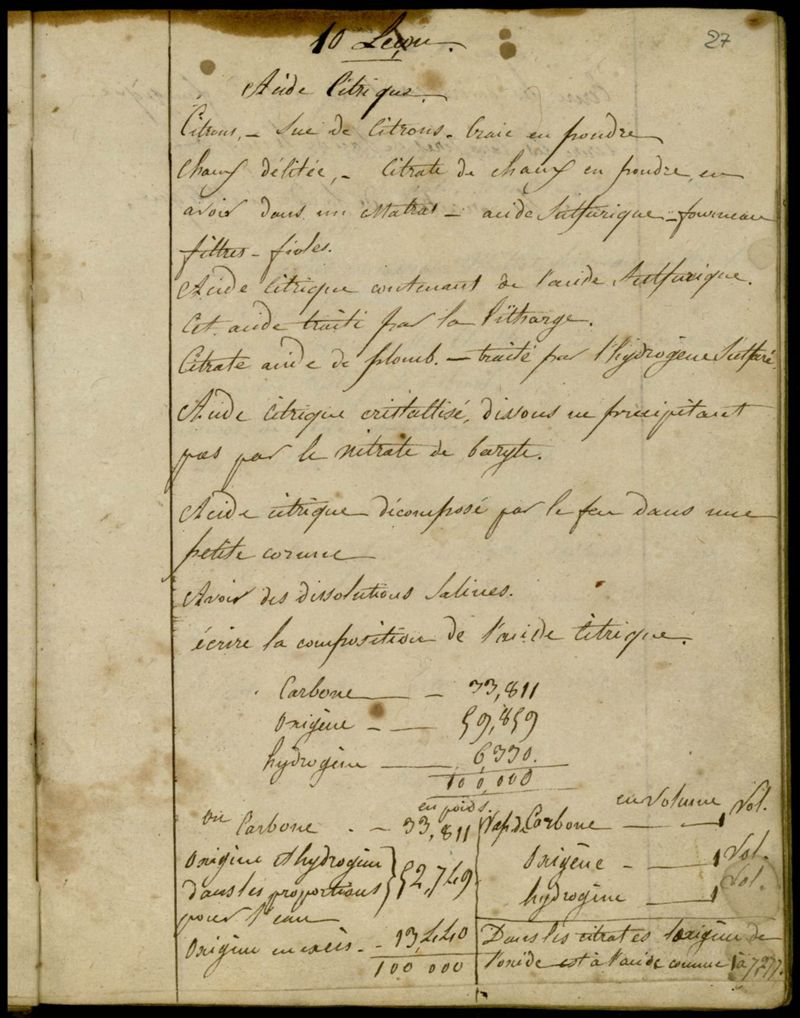 27
10 Leçon.
Acide Citrique.
Citrons, - Suc de Citrons - Craie en poudre
Chaux délitée, - Citrate de chaux en poudre, en
avoir dans un Matras - acide Sulfurique - fourneau
filtres - fioles.
Acide Citrique contenant de l'acide Sulfurique.
Cet acide traité par la litharge.
Citrate acide de plomb. - traité par l'hydrogène Sulfuré
Acide Citrique cristallisé, dissous ne precipitant
pas par le nitrate de baryte.
Acide citrique décomposé par le feu dans une
petite cornue
Avoir des dissolutions Salines.
écrire la composition de l'acide Citrique.
Carbone - 33,811
Oxigène - 59,859
hydrogène 6,330.
100,000
en poids.
ou Carbone . - 33,811
Oxigène et hydrogène
dans les proportions } 52,749
pour l'eau
Oxigène en excès - - 13,440
100 000
en Volume
Vap. de Carbone - 1 Vol.
Oxigène - 1 Vol.
hydrogène - 1 Vol.
Dans les citrates l'oxigène de
l'oxide est à l'acide comme 1 à 7,277.